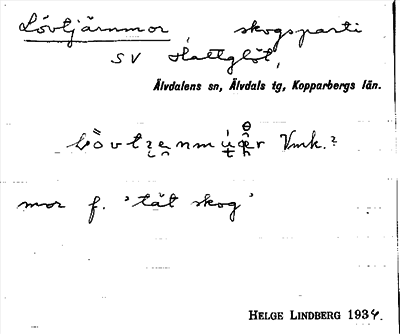 Lövtjärnmor, skogsparti
SV Hattglöt,
Älvdalens sn, Älvdals tg, Kopparbergs län.
Vmk.?
mor f. 'tät skog'
HELGE LINDBERG 1934.